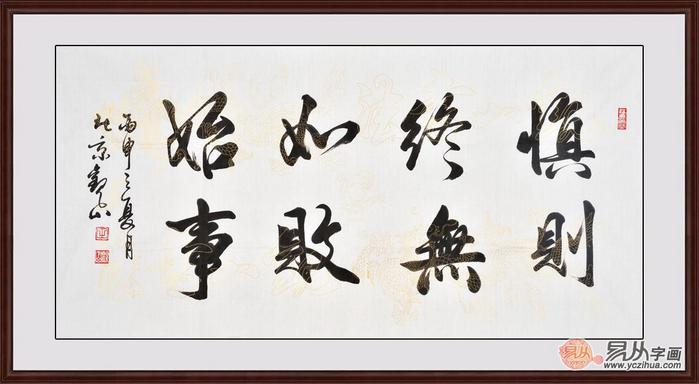 慎終如始
則無敗事
丙申之夏月
北京山
易从
易从字画
www.yczihua.com